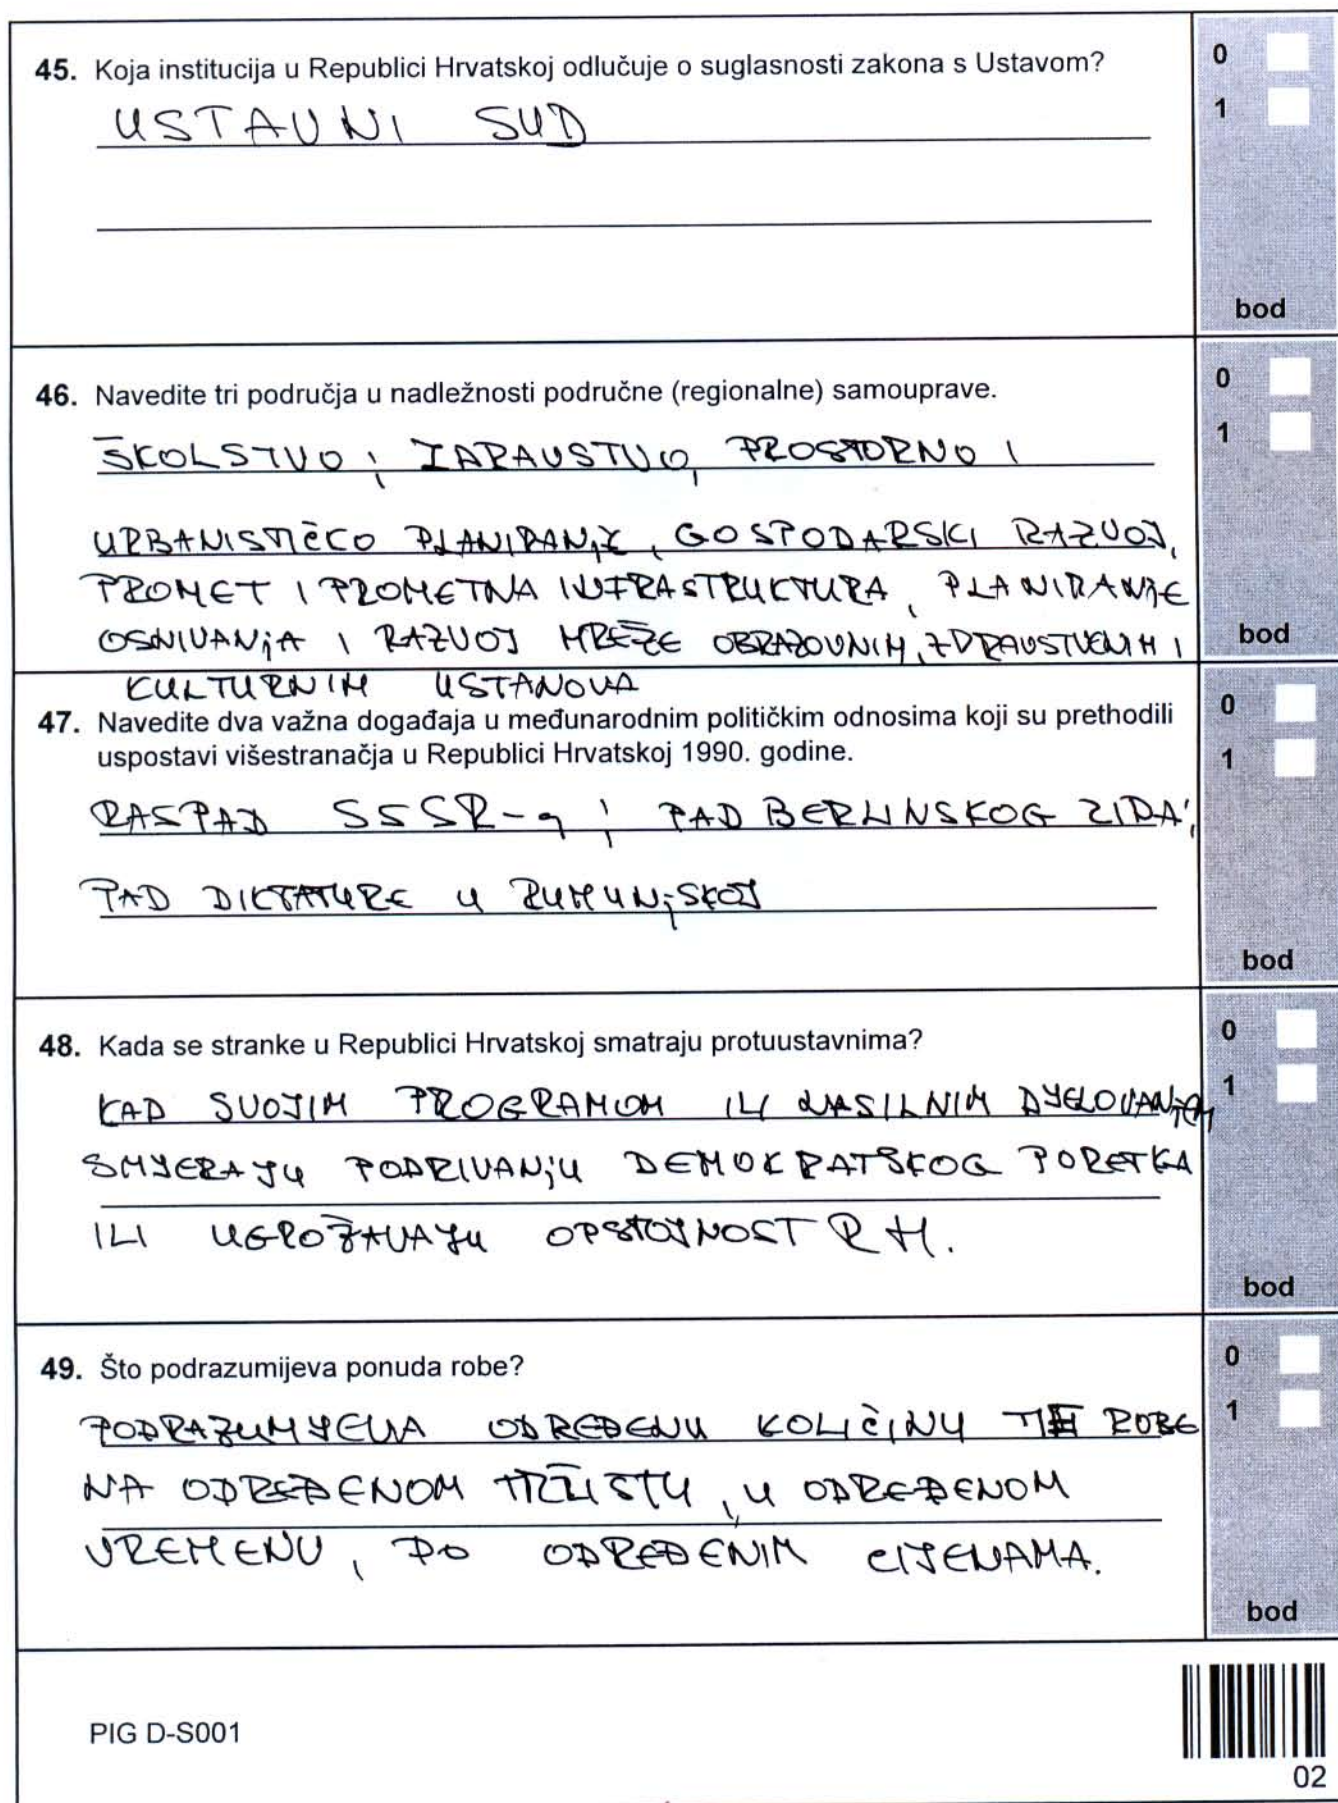 45. Koja institucija u Republici Hrvatskoj odlučuje o suglasnosti zakona s Ustavom?
0
1
USTAVNI SUD
bod
46. Navedite tri područja u nadležnosti područne (regionalne) samouprave.
0
1
ŠKOLSTVO; ZDRAVSTVO, PROSTORNO I
URBANISTIČKO PLANIRANJE, GOSPODARSKI RAZVOJ,
PROMET I PROMETNA INFRASTRUKTURA, PLANIRANJE
OSNIVANJA I RAZVOJ MREŽE OBRAZOVNIH, ZDRAVSTVENIH I
KULTURNIH USTANOVA
bod
47. Navedite dva važna događaja u međunarodnim političkim odnosima koji su prethodili
uspostavi višestranačja u Republici Hrvatskoj 1990. godine.
0
1
RASPAD SSSR-a; PAD BERLINSKOG ZIDA;
PAD DIKTATURE U RUMUNJSKOJ
bod
48. Kada se stranke u Republici Hrvatskoj smatraju protuustavnima?
0
1
KAD SVOJIM PROGRAMOM ILI NASILNIM DJELOVANJEM
SMJERAJU PODRIVANJU DEMOKRATSKOG PORETKA
ILI UGROŽAVAJU OPSTOJNOST RH.
bod
49. Što podrazumijeva ponuda robe?
0
1
PODRAZUMJEVA ODREĐENU KOLIČINU TE ROBE
NA ODREĐENOM TRŽIŠTU, U ODREĐENOM
VREMENU, PO ODREĐENIM CIJENAMA.
bod
PIG D-S001
02